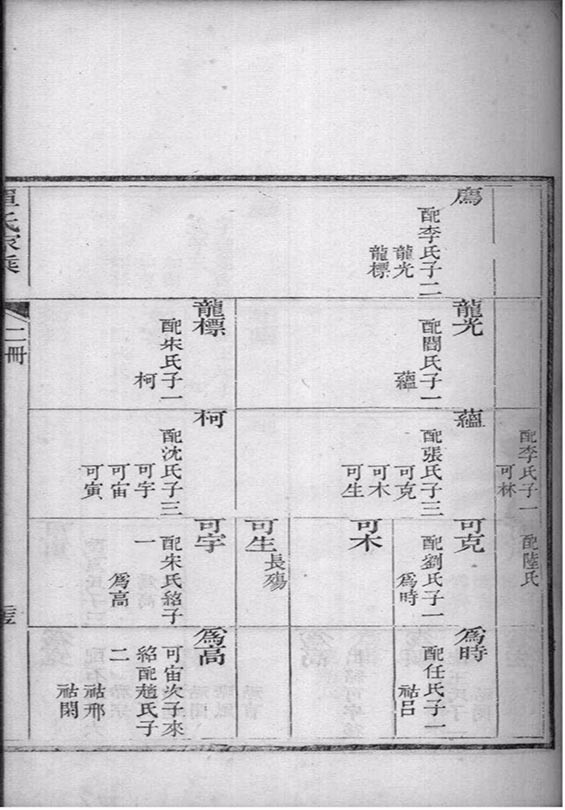 配李氏子一
可林
配陸氏
廌
配李氏子二
龍光
龍標
龍光
配閻氏子一
蘊
龍標
配朱氏子一
柯
蘊
配張氏子三
可克
可木
可生
柯
配沈氏子三
可字
可宙
可寅
可克
配劉氏子一
爲時
可木
可生
長殤
可字
配宋氏紹子
一
爲高
爲時
配任氏子一
祜呂
爲高
可宙次子來
紹配趙氏子
二
祜邢
祜閑
氏家乘
二冊